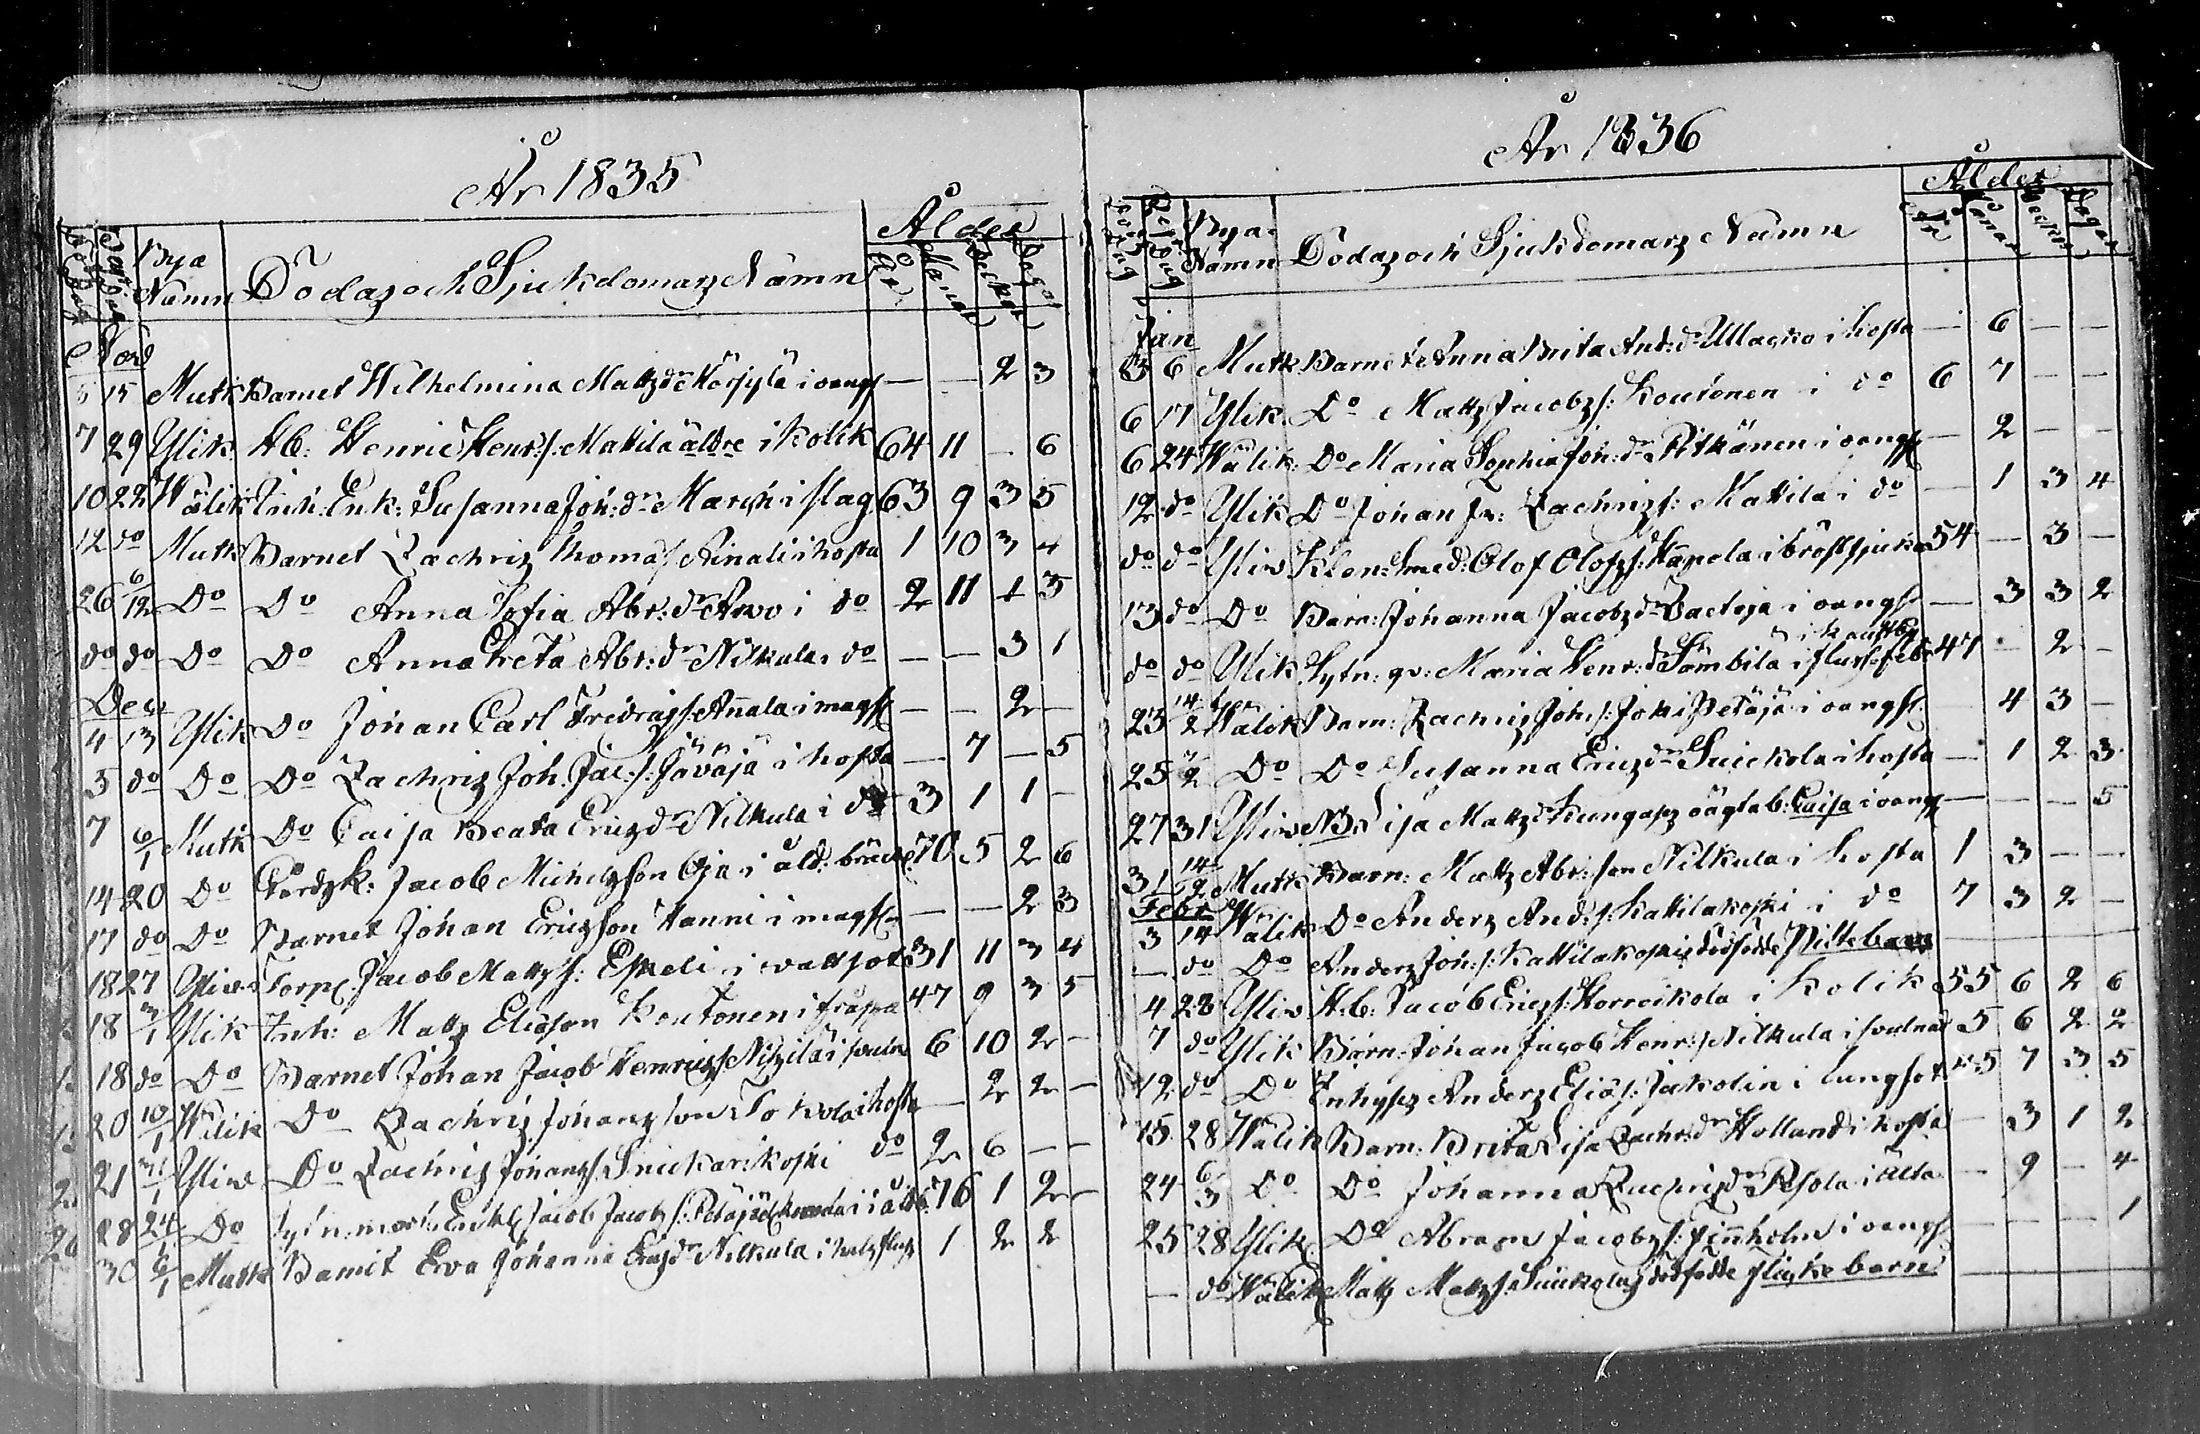 År 1835
Död Dag
Begr. Dag
Bya Namn
Dödas och Sjukdomars Namn
Ålder
År
Månad
Veckor
Dagar
Nov
5 15 Mutk Barnet Wilhelmina Mattzdr i oangf — — 2 3
7 29 Ylik Hb: Henric Henr:s: Mattila äldre i Kolik 64 11 — 6
10 22 Wälik Inh: Enk: Susanna Joh:dr Marsh i slag 63 9 3 5
12 do Mutk Barnet Zachris Thomas: Ainali i hosta 1 10 3 4
26 6/12 Do Do Anna Sofia Abr:dr Arvo i do 2 11 1 3
do do Do Do Anna Greta Abr:dr Nikula i do — — 3 1
Dec
4 13 Ylik Do Johan Carl Fredrics: Annala i magf — — 2 —
5 do Do Do Zachris Joh: Jac:s: Jäväjä i hosta — 7 — 5
7 6/1 Mutk Do Caisa Beata Ericsdr Nikula i do 3 1 1 —
14 20 Do Gårdsk: Jacob Michelsson Oja i åld: bräckl 70 5 2 6
17 do Do Barnet Johan Ericsson Hanni i magf — — 2 3
18 27 Yliv Torp: Jacob Mattss: Eskeli i vattsot 31 11 3 4
18 3/1 Ylik Inh: Matts Eliasson Koutonen i 47 9 3 5
18 do Do Barnet Johan Jacob Henrics: i 6 10 2 —
20 10/1 Wälik Do Zachris Johansson Tokola i hosta — 2 2 —
21 31/1 Yliv Do Zachris Johanss: Snickarikoski do 2 6 — —
28 24/1 Do Sytn: Enkl: Jacob Jacobs: Petäjä i åld: 76 1 2 —
30 6/1 Mutk Barnet Eva Johanna Ericsdr Nikula i halsfluss 1 2 2
År 1836
Död Dag
Begr. Dag
Bya Namn
Dödas och Sjukdomars Namn
Ålder
År
Månad
Veckor
Dagar
Jan
3 6 Mutk Barnet Anna Brita And:dr Ullasko i hosta — 6 — —
6 17 Ylik Do Matts Jacobs: Koutonen i do 6 7 — —
6 24 Wälik Do Maria Sophia Joh:dr Pitkänen i oangf — 2 — —
12 do Ylik Do Johan Zachriss: Mattila i do — 1 3 4
do do Yliv Klen:smed: Olof Olofs: Kangela i bröstsjuka 54 — 3 —
13 do Do Barn: Johanna Jacobsdr i oangf — 3 3 2
do do Ylik Sytn: qv: Maria Henr:dr Sämbilä i 47 — 2 —
23 14/2 Wälik Barn: Zachris Joh:s: Joki Petäjä i oangf — 4 3 —
25 /2 Do Do Susanna Ericsdr Snickola i hosta — 1 2 3
27 31 Yliv Lisa Mattsdr Kungas: oägta b: Caisa i oangf — — — 5
31 14/2 Mutk Barn: Matts Abr:son Nikula i hosta 1 3 — —
Febr
3 14 Wälik Do Anders And:s: Kattilakoski i do 7 3 2 —
— do Do Anders Joh:s: Kattilakoskis dödfödde Piltebarn
4 28 Yliv Hb: Jacob Erics: Korreikola i Kolik 55 6 2 6
7 do Ylik Barn: Johan Jacob Henr:s: Nikula i svulnad 5 6 2 2
12 do Do Inhyses Anders Elias: Jakolin i lungsot 45 7 3 5
15 28 Wälik Barn: Brita Lisa Zachr:dr Holland i hosta — 3 1 2
24 6/3 Do Do Johanna Zachrisdr Pesola i — 9 — 4
25 28 Ylik Do Abram Jacobs: Finnholm i oangf — — — 1
— do Wälik Matts Matts: Snickolas dödfödde flickebarn